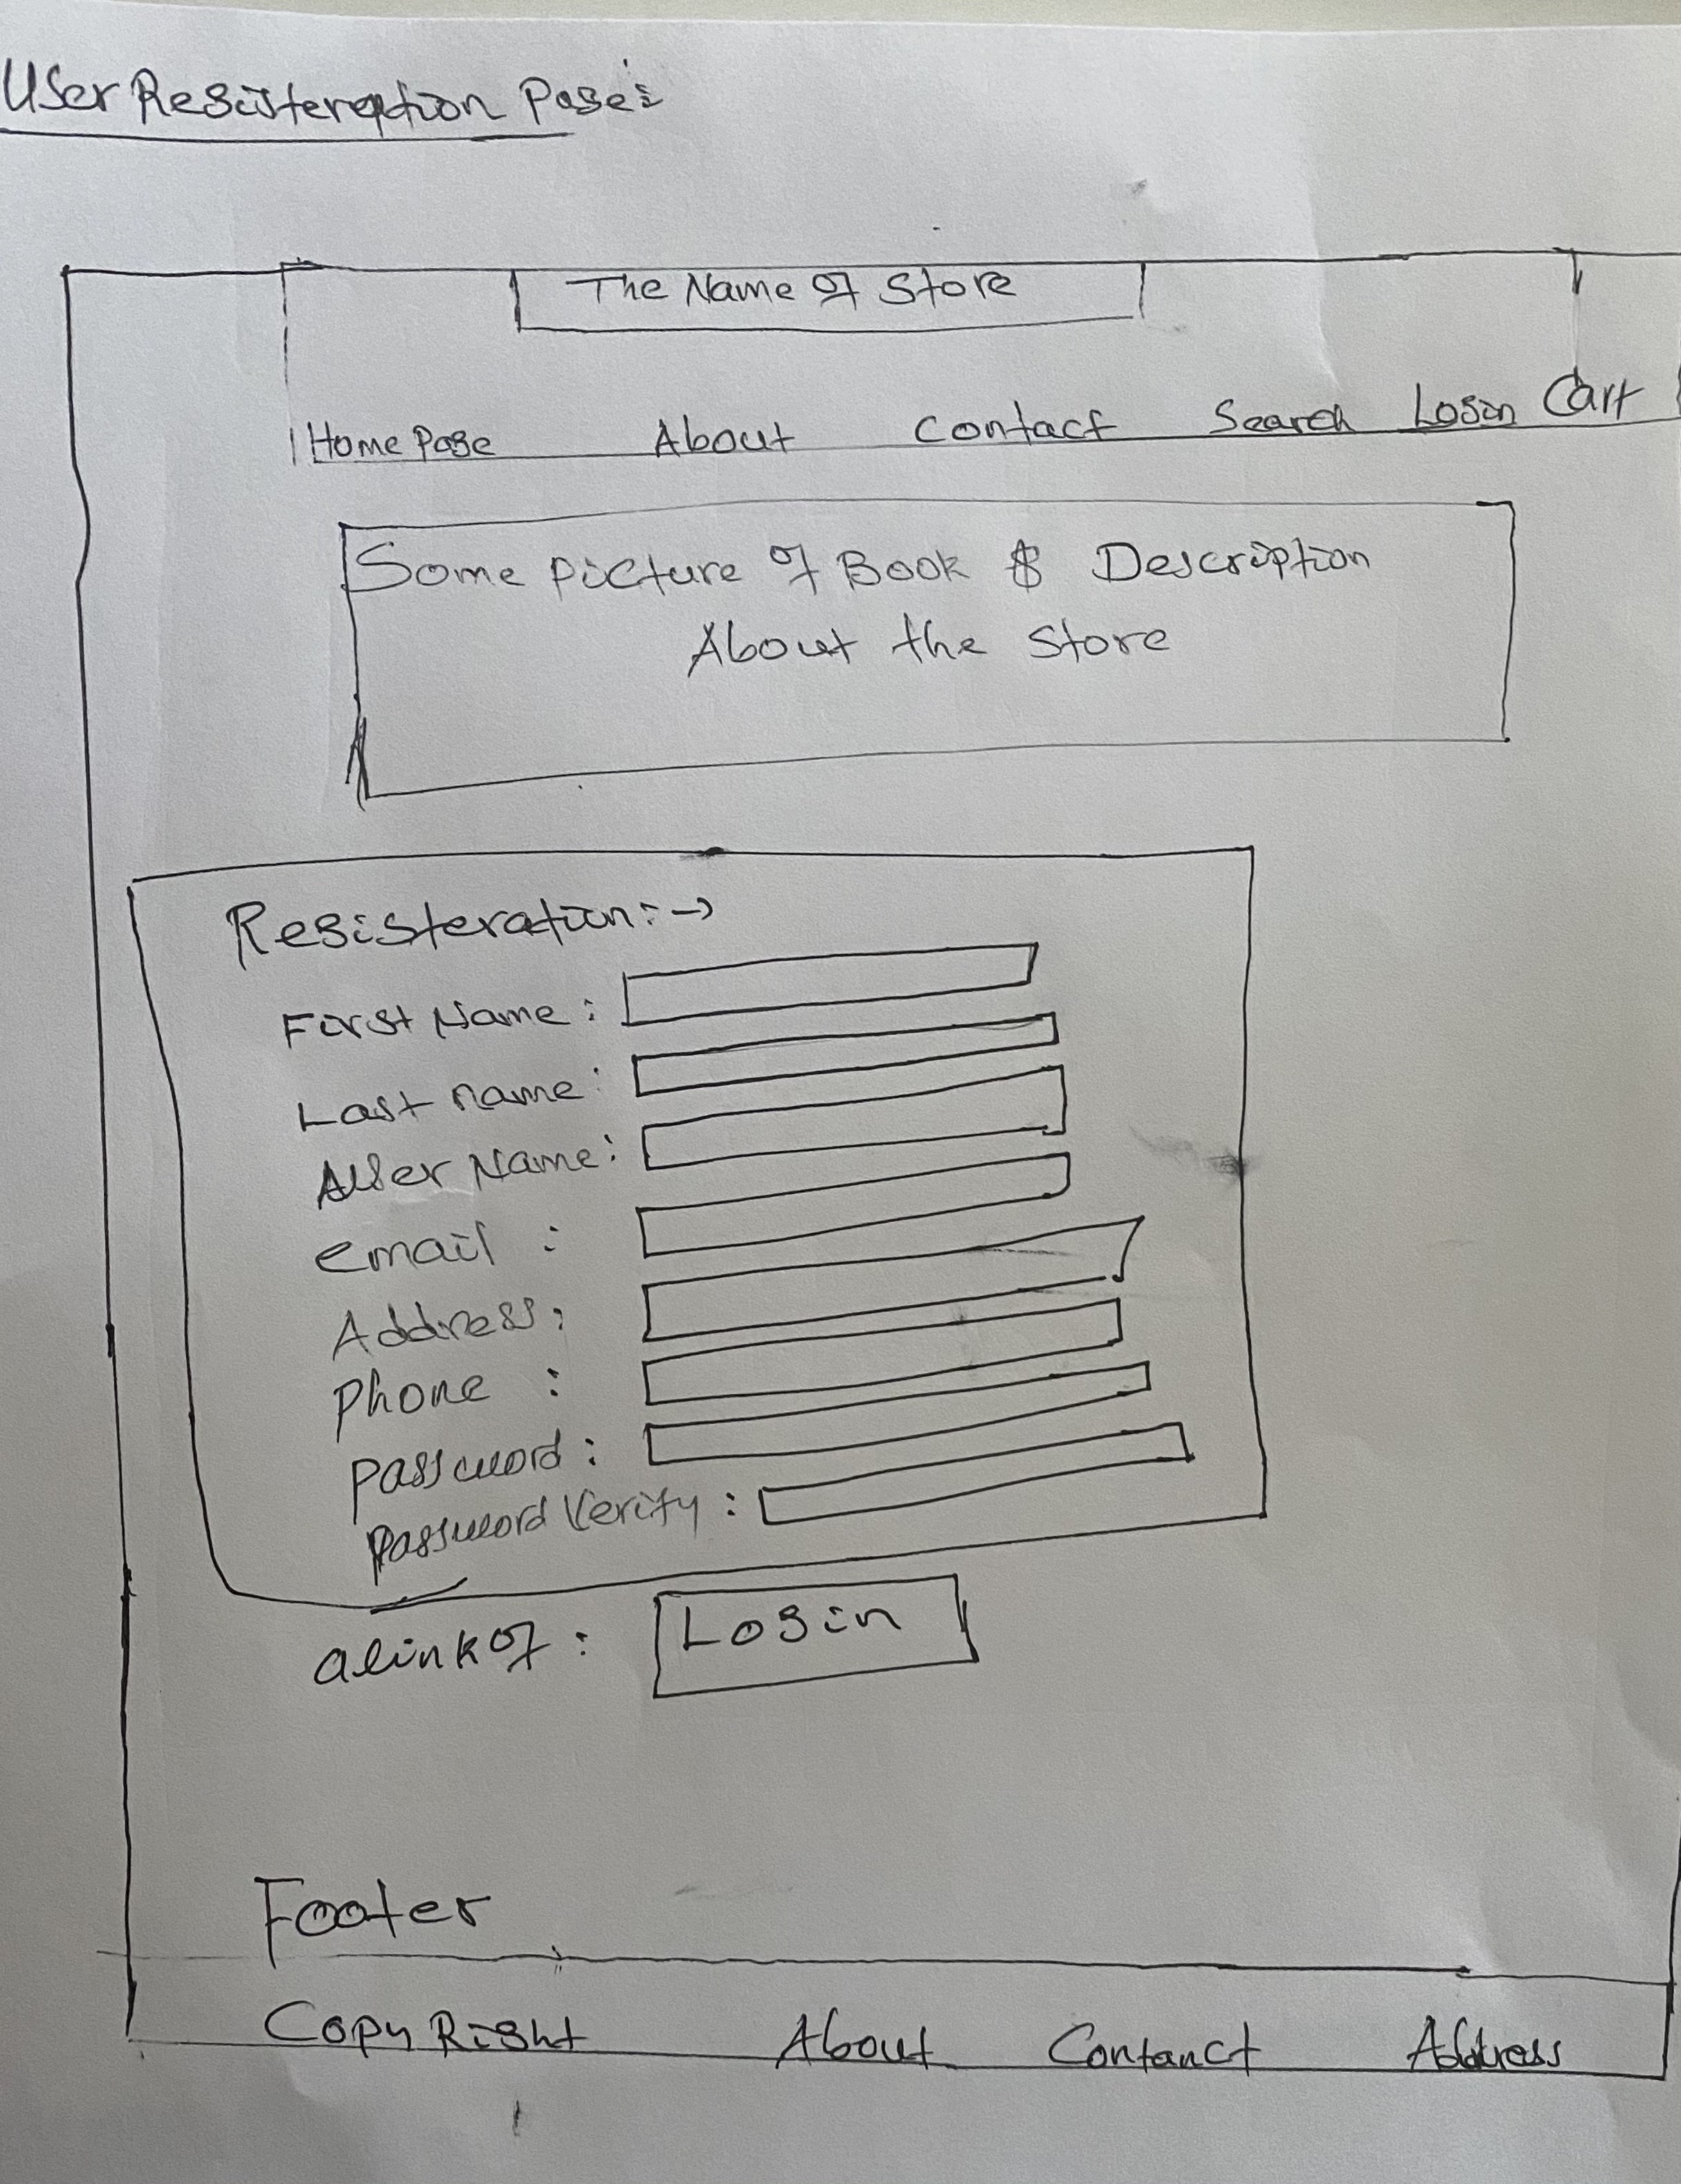 User Registeration Page:
The Name of Store
Home Page About Contact Search Login Cart
Some picture of Book & Description
About the store
Registeration:→
First Name:
Last name:
User Name:
email :
Address:
Phone :
password:
password Verify:
a link of: Login
Footer
Copy Right About Contanct Address